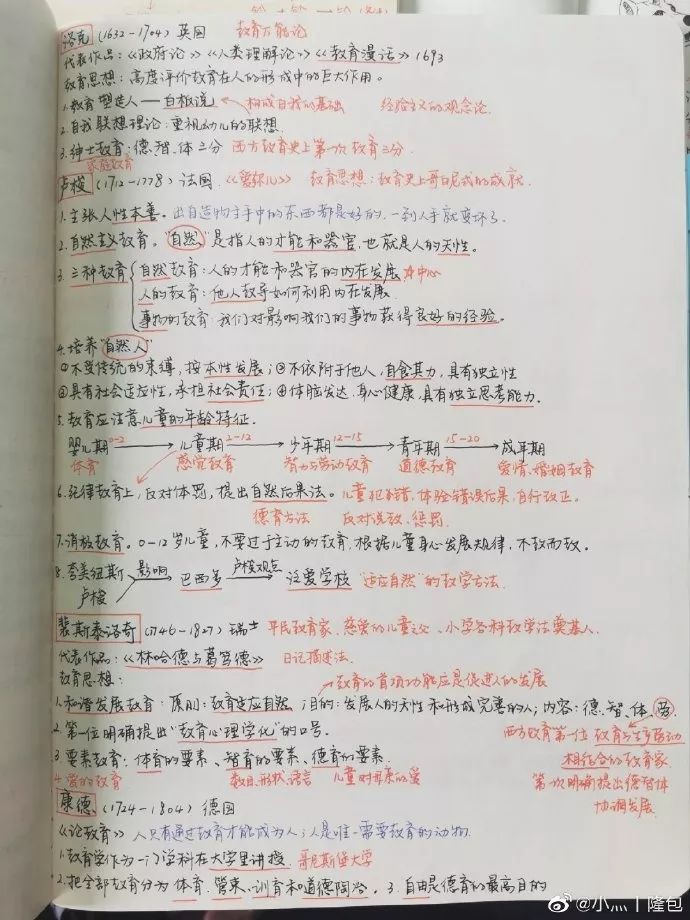 洛克 (1632-1704) 英国 教育万能论
代表作品:《政府论》《人类理解论》、《教育漫话》1693
教育思想:高度评价教育在人的形成中的巨大作用。
1.教育塑造人——白板说 构成自我的基础 经验主义的观念论.
2.自我联想理论:重视幼儿的联想.
3.绅士教育:德、智、体三分 西方教育史上第一次教育三分.
家庭教育
卢梭 (1712-1778) 法国.《爱弥儿》 教育思想:教育史上哥白尼式的成就
1.主张人性本善。出自造物主手中的东西都是好的,一到人手就变坏了.
2.自然主义教育。"自然"是指人的才能和器官,也就是人的天性。
3.三种教育 自然教育:人的才能和器官的内在发展 中心
人的教育:他人教导如何利用内在发展.
事物的教育:我们对影响我们的事物获得良好的经验。
4.培养"自然人"
①不受传统的束缚,按本性发展;②不依附于他人,自食其力,具有独立性
③具有社会适应性,承担社会责任;④体脑发达,身心健康,具有独立思考能力.
5.教育应注意儿童的年龄特征.
婴儿期 0-2 儿童期 2-12 少年期 12-15 青年期 15-20 成年期
体育 感觉教育 智力与劳动教育 道德教育 爱情、婚姻教育
6.纪律教育上,反对体罚,提出自然后果法。儿童犯错,体验错误后果,自行改正。
德育方法 反对说教、惩罚.
7.消极教育。0-12岁儿童,不要过于主动的教育,根据儿童身心发展规律,不教而教.
8.夸美纽斯 影响 巴西多 卢梭观点 泛爱学校 "适应自然"的教学方法.
卢梭
裴斯泰洛齐 (1746-1827) 瑞士 平民教育家.慈爱的儿童之父.小学各科教学法奠基人.
代表作品:《林哈德与葛笃德》 日记描述法.
教育思想: 教育的首项功能应是促进人的发展
1.和谐发展教育:原则:教育适应自然;目的:发展人的天性和形成完善的人;内容:德、智、体、劳.
2.第一位明确提出"教育心理学化"的口号。 西方教育第一位教育与生产劳动
3.要素教育:体育的要素、智育的要素、德育的要素. 相结合的教育家
4.爱的教育 数目、形状、语言 儿童对母亲的爱 第一次明确提出德智体
协调发展.
康德 (1724-1804) 德国
《论教育》人只有通过教育才能成为人;人是惟一需要教育的动物.
1.教育学作为一门学科在大学里讲授.哥尼斯堡大学
2.把全部教育分为体育、管束、训育和道德陶冶. 3.自由是德育的最高目的
@小灬丨隆包